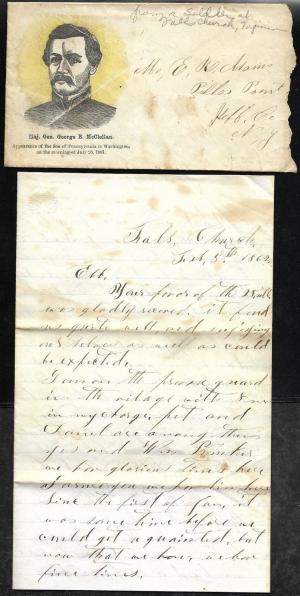 from a Soldier at
Falls Church, Virginia
Mr, E, R, Adams
Pillar Point
Jeff. Co
N. Y
Maj. Gen. George B. McClellan.
Appearance of the Son of Pennsylvania in Washington,
on the morning of July 26, 1861.
Fals, Church,
Feb, 5th 1862
Ebb.
Your favor of the
was gladly received. it found
us quite well and enjoying
our selves as well as could
be expected.
I am on the guard
in the vilage with 8 men
in my charge,
and
are among them
yes and Wm
we have glorious times here
I you we have
Since the first of Jan, it
was some time before we
could get a quainted, but
now that we have, we have
fine times.